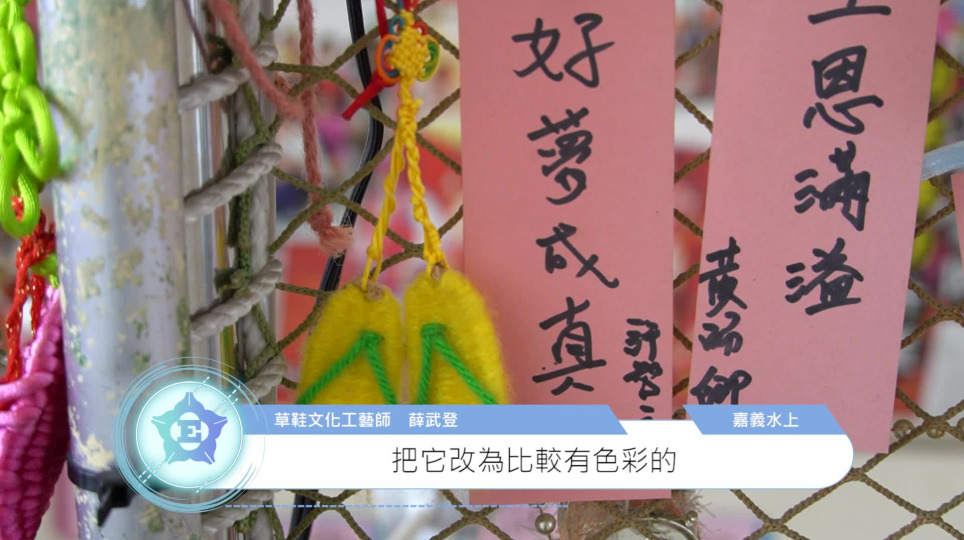 好夢成真
主恩滿溢
E
草鞋文化工藝師 薛武登
嘉義水上
把它改為比較有色彩的